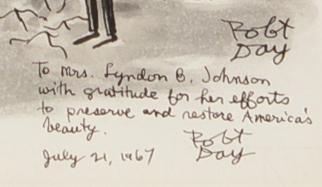 Robt
Day
To Mrs. Lyndon B. Johnson
with gratitude for her efforts
to preserve and restore America's
beauty.
Robt
July 21, 1967 Day